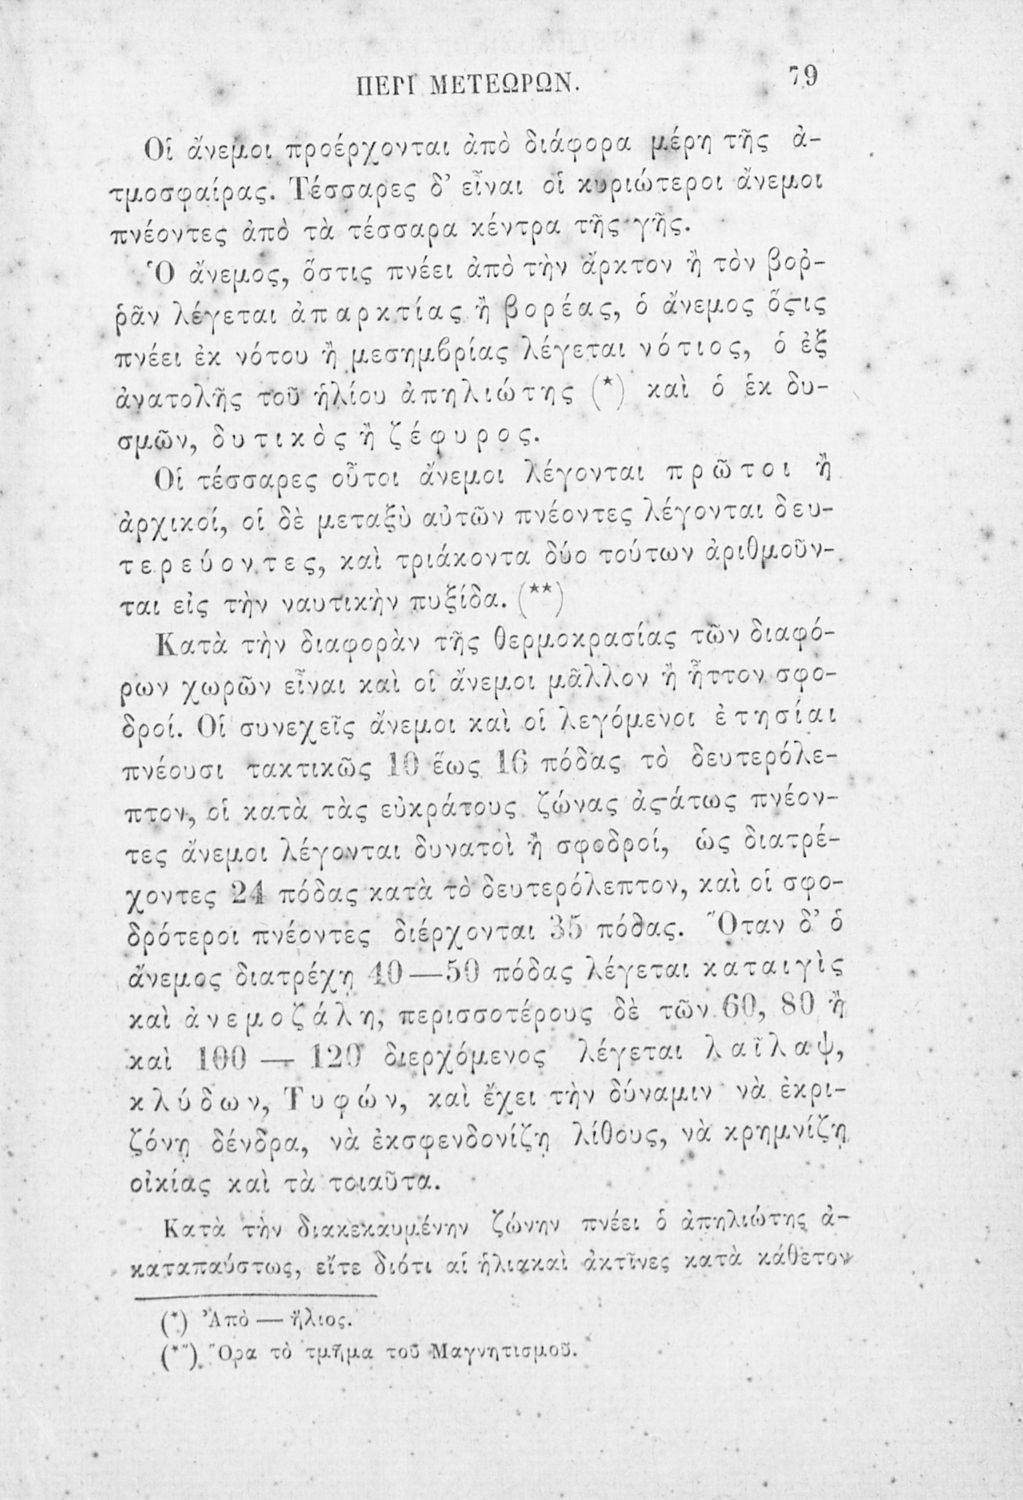 ΠΕΡΙ ΜΕΤΕΩΡΩΝ. 79
Οἱ ἄνεμοι προέρχονται ἀπὸ διάφορα μέρη τῆς ἀ-
τμοσφαίρας. Τέσσαρες δ’ εἶναι οἱ κυριώτεροι ἄνεμοι
πνέοντες ἀπὸ τὰ τέσσαρα κέντρα τῆς γῆς.
Ὁ ἄνεμος, ὅστις πνέει ἀπὸ τὴν ἄρκτον ἢ τὸν βοῤ-
ῥᾶν λέγεται ἀπαρκτίας ἢ βορέας, ὁ ἄνεμος ὅϛις
πνέει ἐκ νότου ἢ μεσημβρίας λέγεται νότιος, ὁ ἐξ
ἀνατολῆς τοῦ ἡλίου ἀπηλιώτης (*) καὶ ὁ ἐκ δυ-
σμῶν, δυτικὸς ἢ ζέφυρος.
Οἱ τέσσαρες οὗτοι ἄνεμοι λέγονται πρῶτοι ἢ
ἀρχικοί, οἱ δὲ μεταξὺ αὐτῶν πνέοντες λέγονται δευ-
τερεύοντες, καὶ τριάκοντα δύο τούτων ἀριθμοῦν-
ται εἰς τὴν ναυτικὴν πυξίδα. (**)
Κατὰ τὴν διαφορὰν τῆς θερμοκρασίας τῶν διαφό-
ρων χωρῶν εἶναι καὶ οἱ ἄνεμοι μᾶλλον ἢ ἧττον σφο-
δροί. Οἱ συνεχεῖς ἄνεμοι καὶ οἱ λεγόμενοι ἐτησίαι
πνέουσι τακτικῶς 10 ἕως 16 πόδας τὸ δευτερόλε-
πτον, οἱ κατὰ τὰς εὐκράτους ζώνας ἀϛάτως πνέον-
τες ἄνεμοι λέγονται δυνατοὶ ἢ σφοδροί, ὡς διατρέ-
χοντες 24 πόδας κατὰ τὸ δευτερόλεπτον, καὶ οἱ σφο-
δρότεροι πνέοντες διέρχονται 35 πόδας. Ὅταν δ’ ὁ
ἄνεμος διατρέχῃ 40—50 πόδας λέγεται καταιγὶς
καὶ ἀνεμοζάλη, περισσοτέρους δὲ τῶν 60, 80 ἢ
καὶ 100 — 120 διερχόμενος λέγεται λαῖλαψ,
κλύδων, Τυφών, καὶ ἔχει τὴν δύναμιν νὰ ἐκρι-
ζόνῃ δένδρα, νὰ ἐκσφενδονίζῃ λίθους, νὰ κρημνίζῃ
οἰκίας καὶ τὰ τοιαῦτα.
Κατὰ τὴν διακεκαυμένην ζώνην πνέει ὁ ἀπηλιώτης ἀ-
καταπαύστως, εἴτε διότι αἱ ἡλιακαὶ ἀκτῖνες κατὰ κάθετον
(*) Ἀπὸ — ἥλιος.
(**) Ὅρα τὸ τμῆμα τοῦ Μαγνητισμοῦ.